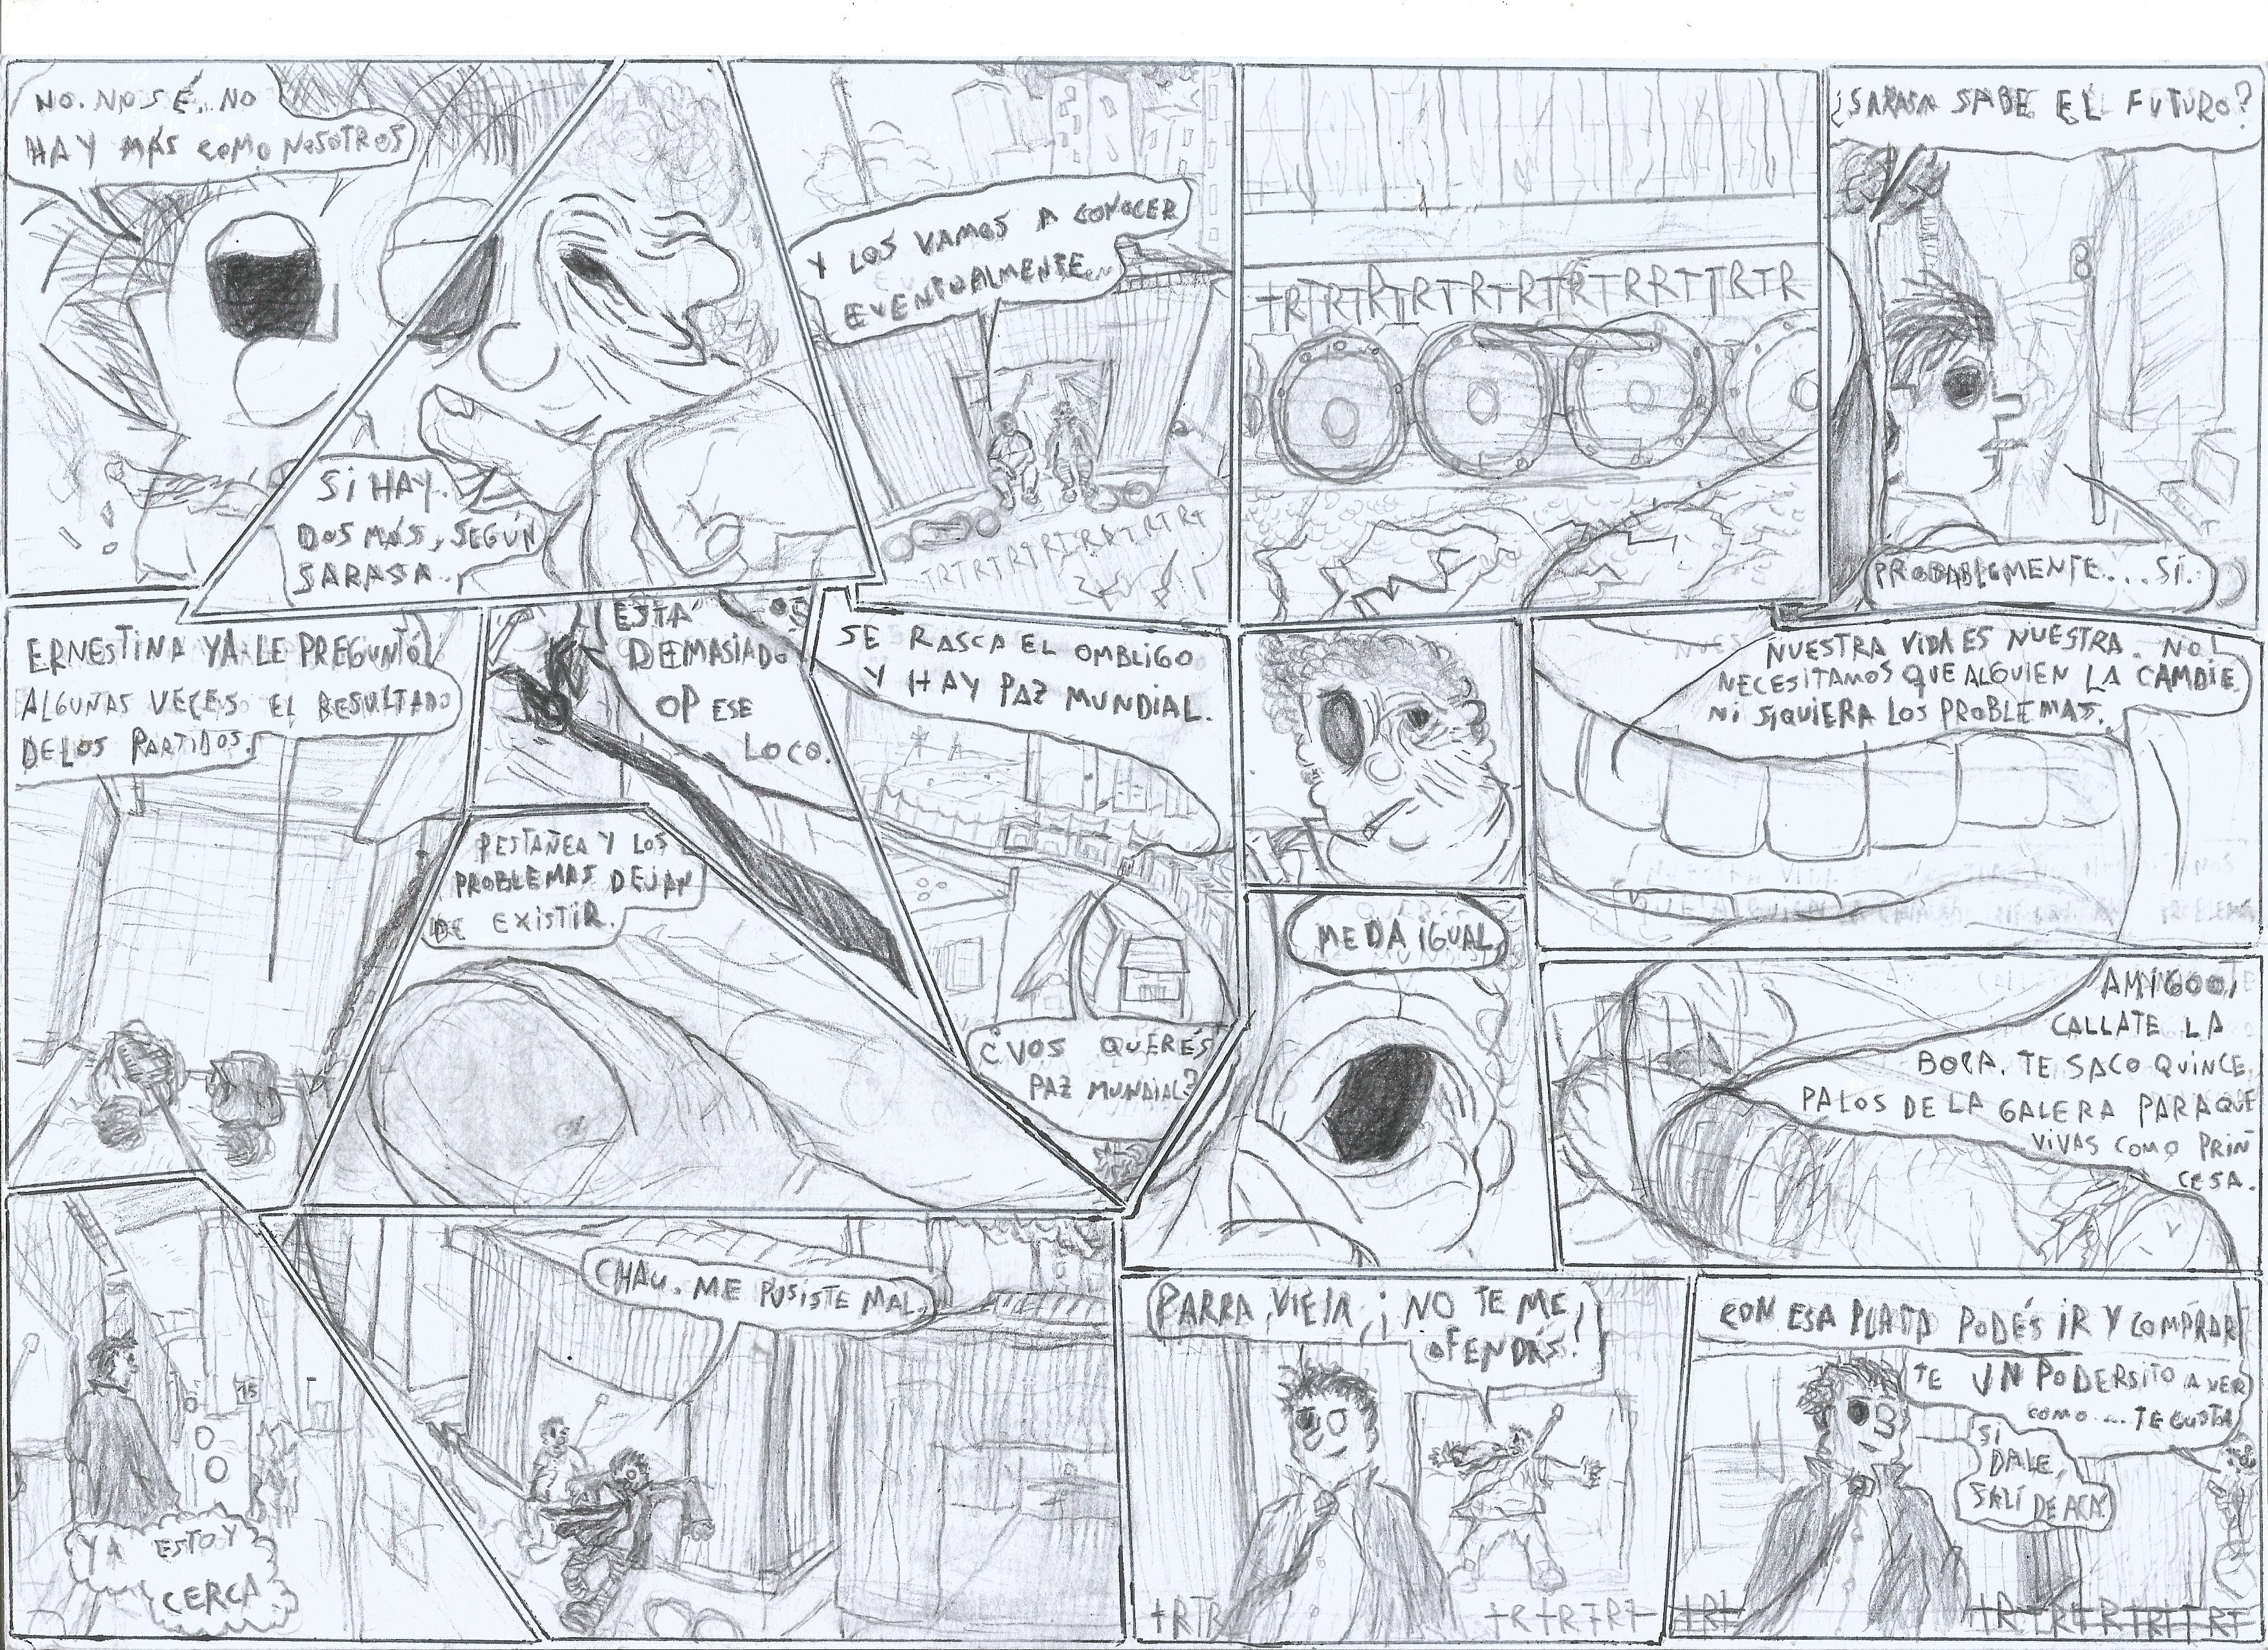 NO. NO SÉ. NO
HAY MÁS COMO NOSOTROS
SI HAY.
DOS MÁS, SEGÚN
SARASA.
Y LOS VAMOS A CONOCER
EVENTUALMENTE.
TRTRTRTRTRTRTRT
TRTRTRTRTRTRTRTRRTTRTR
¿SARASA SABE EL FUTURO?
PROBABLEMENTE... SI.
ERNESTINA YA LE PREGUNTÓ
ALGUNAS VECES EL RESULTADO
DE LOS PARTIDOS.
ESTÁ
DEMASIADO
OP ESE
LOCO.
PESTAÑEA Y LOS
PROBLEMAS DEJAN
DE EXISTIR.
SE RASCA EL OMBLIGO
Y HAY PAZ MUNDIAL.
¿VOS QUERÉS
PAZ MUNDIAL?
NUESTRA VIDA ES NUESTRA. NO
NECESITAMOS QUE ALGUIEN LA CAMBIE
NI SIQUIERA LOS PROBLEMAS.
ME DA IGUAL.
AMIGOO,
CALLATE LA
BOCA. TE SACO QUINCE
PALOS DE LA GALERA PARA QUE
VIVAS COMO PRIN
CESA.
15
YA ESTOY
CERCA.
CHAU. ME PUSISTE MAL.
PARRA, VIEJA, ¡NO TE ME
OFENDÁS!
TRTR
TRTRTRT
CON ESA PLATA PODÉS IR Y COMPRAR
TE UN PODERSITO A VER
COMO... TE GUSTA
SI
DALE,
SALÍ
DE ACÁ.
TRT
TRTRTRTRTTRT